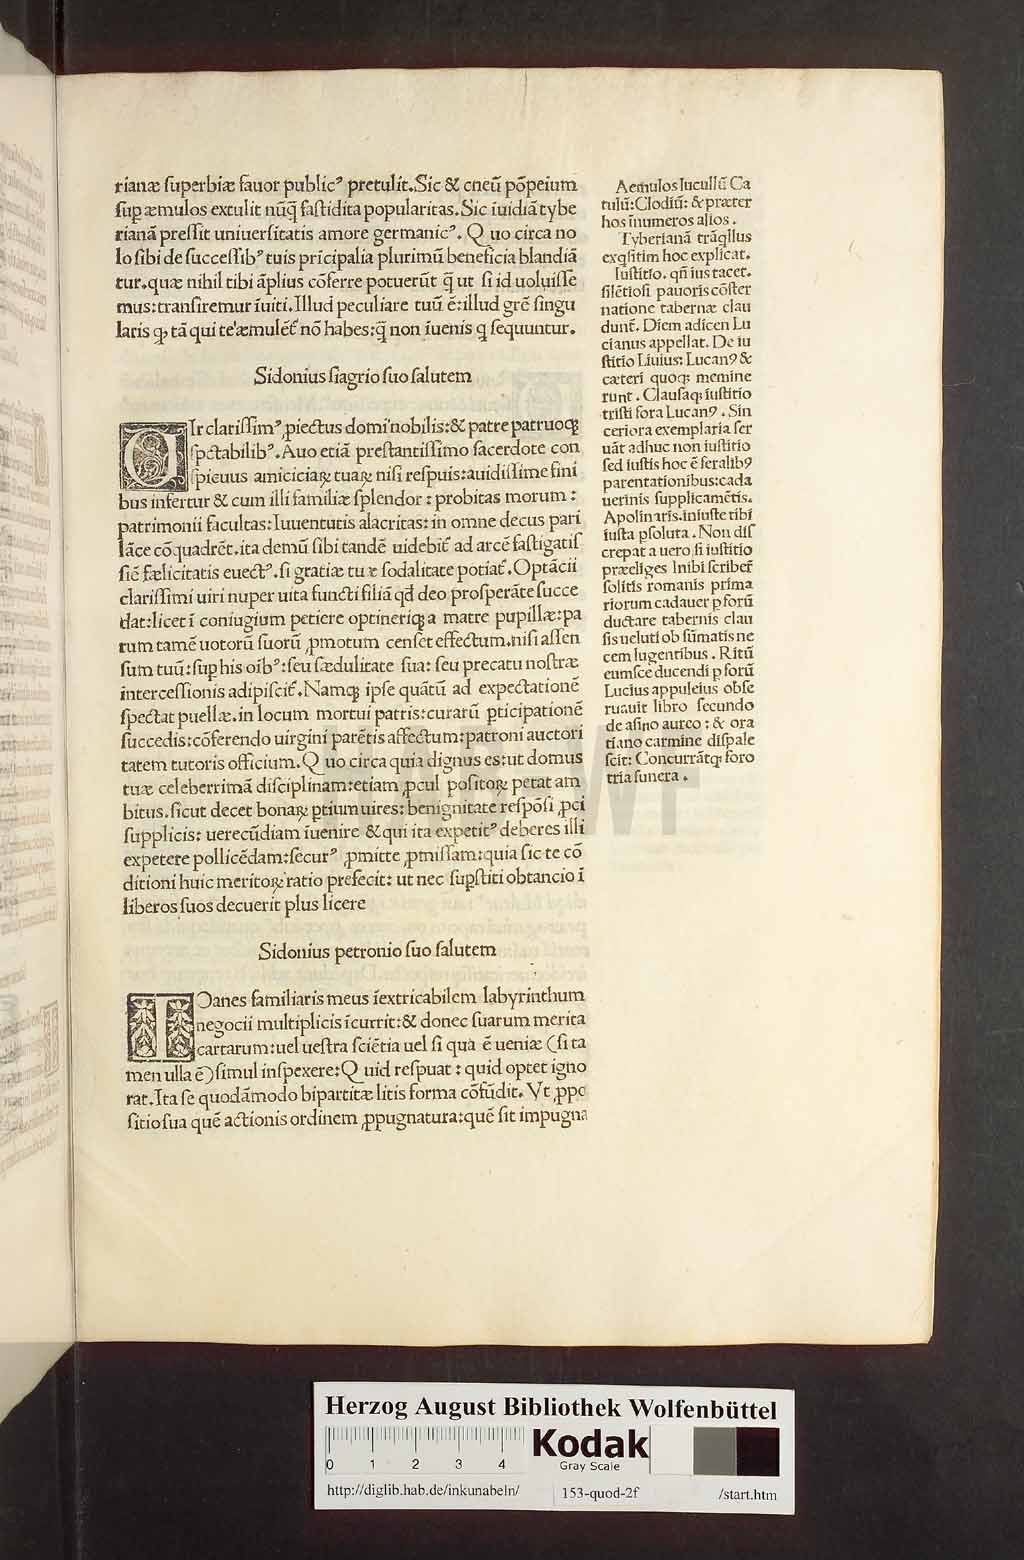 rianæ superbiæ fauor publicꝰ pretulit. Sic & cneū põpeium
suꝑ æmulos extulit nũq̃ fastidita popularitas. Sic īuidiā tybe
rianā pressit uniuersitatis amore germanicꝰ. Quo circa no
lo sibi de successibꝰ tuis pricipalia plurimū beneficia blandiā
tur. quæ nihil tibi āplius cōferre potuerūt q̃ ut si id uoluisse
mus: transiremur īuiti. Illud peculiare tuū ē: illud grē singu
laris ꝙ tā qui te æmulet̃ nō habes: q̃ non iuenis q sequuntur.
Sidonius siagrio suo salutem
VIr clarissimꝰ ꝓiectus domi nobilis: & patre patruoqꝫ
spectabilibꝰ. Auo etiā prestantissimo sacerdote con
spicuus amiciciaꝝ tuaꝝ nisi respuis: auidissime fini
bus infertur & cum illi familiæ splendor: probitas morum:
patrimonii facultas: Iuuentutis alacritas: in omne decus pari
lāce cōquadrēt. ita demū sibi tandē uidebit̃ ad arcē fastigatis
siē fælicitatis euectꝰ. si gratiæ tuæ sodalitate potiat̃. Optācii
clarissimi uiri nuper uita functi filiā qd̃ deo prosperāte succe
dat: licet ī coniugium petiere optineriqꝫ a matre pupillæ: pa
rum tamē uotorū suorū ꝓmotum censet effectum. nisi assen
sum tuū: suꝑ his oībꝰ: seu sædulitate sua: seu precatu nostræ
intercessionis adipiscit̃. Namqꝫ ipse quātū ad expectationē
spectat puellæ. in locum mortui patris: curarū ꝑticipationē
succedis: cōferendo uirgini parētis affectum: patroni auctori
tatem tutoris officium. Quo circa quia dignus es: ut domus
tuæ celeberrimā disciplinam: etiam ꝓcul positoꝝ petat am
bitus. sicut decet bonaꝝ ꝑtium uires: benignitate respōsi ꝓci
supplicis: uerecūdiam iuenire & qui ita expetitꝰ deberes illi
expetere pollicēdam: securꝰ ꝓmitte ꝓmissam: quia sic te cō
ditioni huic meritoꝝ ratio prefecit: ut nec suꝑstiti obtancio ī
liberos suos decuerit plus licere
Sidonius petronio suo salutem
IOanes familiaris meus īextricabilem labyrinthum
negocii multiplicis īcurrit: & donec suarum merita
cartarum: uel uestra sciētia uel si qua ē ueniæ (si ta
men ulla ē) simul inspexere: Quid respuat: quid optet igno
rat. Ita se quodāmodo bipartitæ litis forma cōfūdit. Vt ꝓpo
sitio sua quē actionis ordinem ꝓpugnatura: quē sit impugna
Aemulos lucullū Ca
tulū: Clodiū: & præter
hos īnumeros alios.
Tyberianā trāq̃llus
exq̃sitim hoc explicat.
Iustitio. qñ ius tacet.
silētiosi pauoris cōster
natione tabernæ clau
dunt̃. Diem adicen Lu
cianus appellat. De iu
stitio Liuius: Lucanꝰ &
cæteri quoqꝫ memine
runt. Clausaqꝫ iustitio
tristi fora Lucanꝰ. Sin
ceriora exemplaria ser
uāt adhuc non iustitio
sed iustis hoc ē feralibꝰ
parentationibus: cada
uerinis supplicamētis.
Apolinaris. iniuste tibi
iusta ꝑsoluta. Non dis
crepat a uero si iustitio
præeliges Inibi scribet̃
solitis romanis prima
riorum cadauer p forū
ductare tabernis clau
sis ueluti ob sūmatis ne
cem lugentibus. Ritū
eumsce ducendi p forū
Lucius appuleius obse
ruauit libro secundo
de asino aureo: & ora
tiano carmine dispale
scit: Concurrātqꝫ foro
tria funera.
Herzog August Bibliothek Wolfenbüttel
0 1 2 3 4
Kodak
Gray Scale
http://diglib.hab.de/inkunabeln/ 153-quod-2f /start.htm